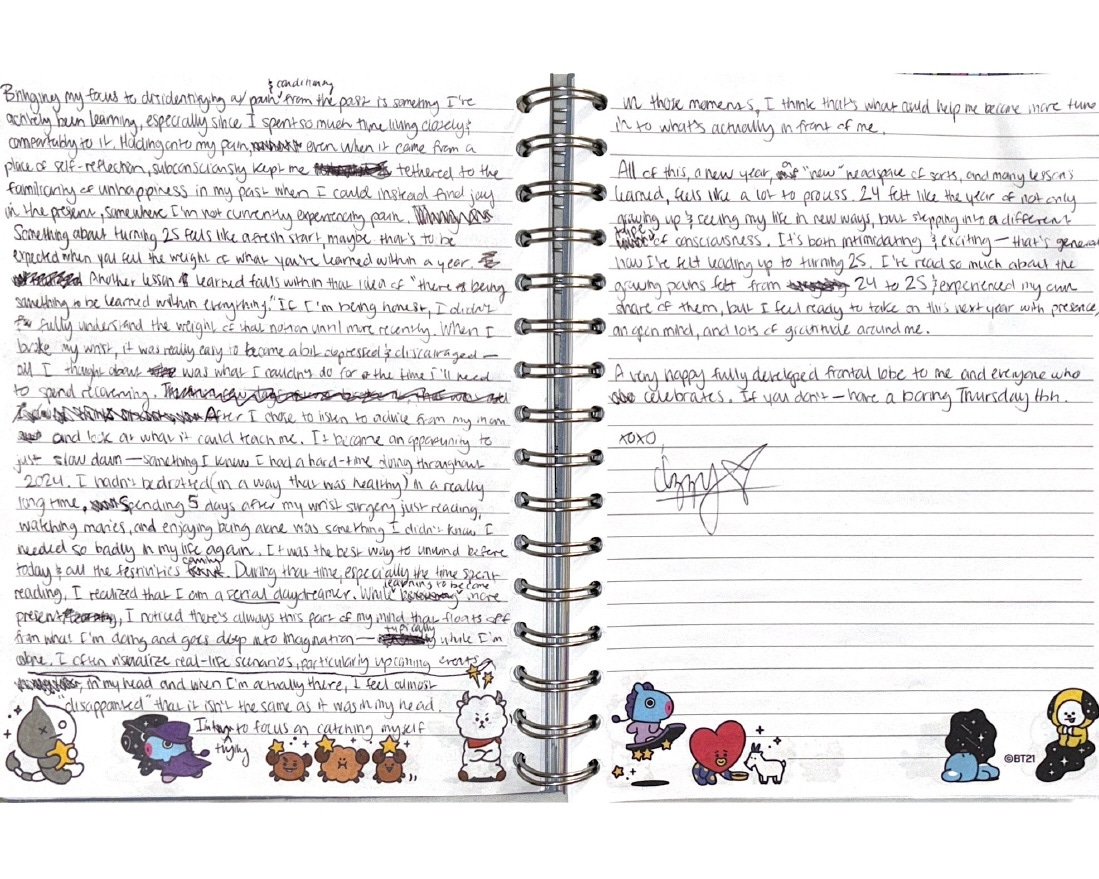 & conditioning
Bringing my focus to disidentifying w/ pain from the past is something I've
actively been learning, especially since I spent so much time living closely &
comfortably to it. Holding onto my pain, even when it came from a
place of self-reflection, subconsciously kept me tethered to the
familiarity of unhappiness in my past when I could instead find joy
in the present, somewhere I'm not currently experiencing pain.
Something about turning 25 feels like a fresh start, maybe that's to be
expected when you feel the weight of what you've learned within a year.
Another lesson I learned falls within that idea of "there is being
something to be learned within everything." If I'm being honest, I didn't
fully understand the weight of that notion until more recently. When I
broke my wrist, it was really easy to become a bit depressed & discouraged —
all I thought about was what I couldn't do for the time I'll need
to spend recovering.
After I chose to listen to advice from my mom
and look at what it could teach me. It became an opportunity to
just slow down — something I knew I had a hard-time doing throughout
2024. I hadn't bedrotted (in a way that was healthy) in a really
long time, Spending 5 days after my wrist surgery just reading,
watching movies, and enjoying being alone was something I didn't know I
needed so badly in my life again. It was the best way to unwind before
today & all the festivities coming. During that time, especially the time spent
reading, I realized that I am a serial daydreamer. While learning to become more
present, I noticed there's always this part of my mind that floats off
from what I'm doing and goes deep into imagination — typically while I'm
alone. I often visualize real-life scenarios, particularly upcoming events
in my head and when I'm actually there, I feel almost
"disappointed" that it isn't the same as it was in my head.
In trying to focus on catching myself
in those moments, I think that's what could help me become more tune
in to what's actually in front of me.
All of this, a new year, a "new" headspace of sorts, and many lessons
learned, feels like a lot to process. 24 felt like the year of not only
growing up & seeing my life in new ways, but stepping into a different
of consciousness. It's both intimidating & exciting — that's general
how I've felt leading up to turning 25. I've read so much about the
growing pains felt from 24 to 25 & experienced my own
share of them, but I feel ready to take on this next year with presence,
an open mind, and lots of gratitude around me.
A very happy fully developed frontal lobe to me and everyone who
celebrates. If you don't — have a boring Thursday tbh.
xoxo,
Izzy
©BT21